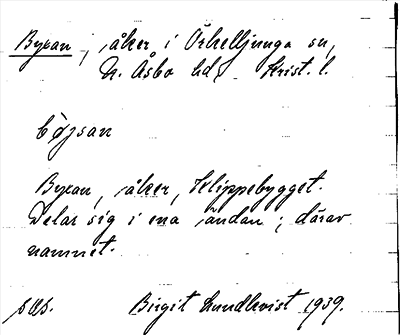 Byxan, åker i Örkelljunga sn,
N. Åsbo hd, Krist. l.
bøjsan
Byxan, åker, Klippebygget.
Delar sig i ena ändan; därav
namnet.
sas. Birgit Lundkvist 1939.